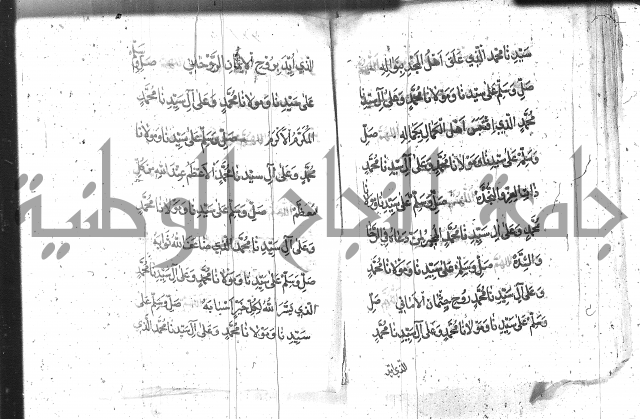 سيدنا محمد الذي على أهل المجد بهاله اللهم
صل وسلم على سيدنا ومولانا محمد وعلى آل سيدنا
محمد الذي أهل الكمال بجماله اللهم صل
وسلم على سيدنا ومولانا محمد وعلى آل سيدنا محمد
اللهم صل وسلم على سيدنا ومولانا
محمد وعلى آل سيدنا محمد
والشدة اللهم صل وسلم على سيدنا ومولانا محمد
وعلى آل سيدنا محمد روح جثمان صل
وسلم على سيدنا ومولانا محمد وعلى آل سيدنا محمد
الذي أيد
الذي أيد بروح الروحاني صل وسلم
على سيدنا ومولانا محمد وعلى آل سيدنا محمد
المكرم الأكرم اللهم صل وسلم على سيدنا ومولانا
محمد وعلى آل سيدنا محمد الأعظم عند الله من كل
معظم اللهم صل وسلم على سيدنا ومولانا محمد
وعلى آل سيدنا محمد الذي ضاعف الله ثوابه
صل وسلم على سيدنا ومولانا محمد وعلى آل سيدنا محمد
الذي يسر الله لكل خير أسبابه صل وسلم على
سيدنا ومولانا محمد وعلى آل سيدنا محمد الذي
جامعة النجاح الوطنية